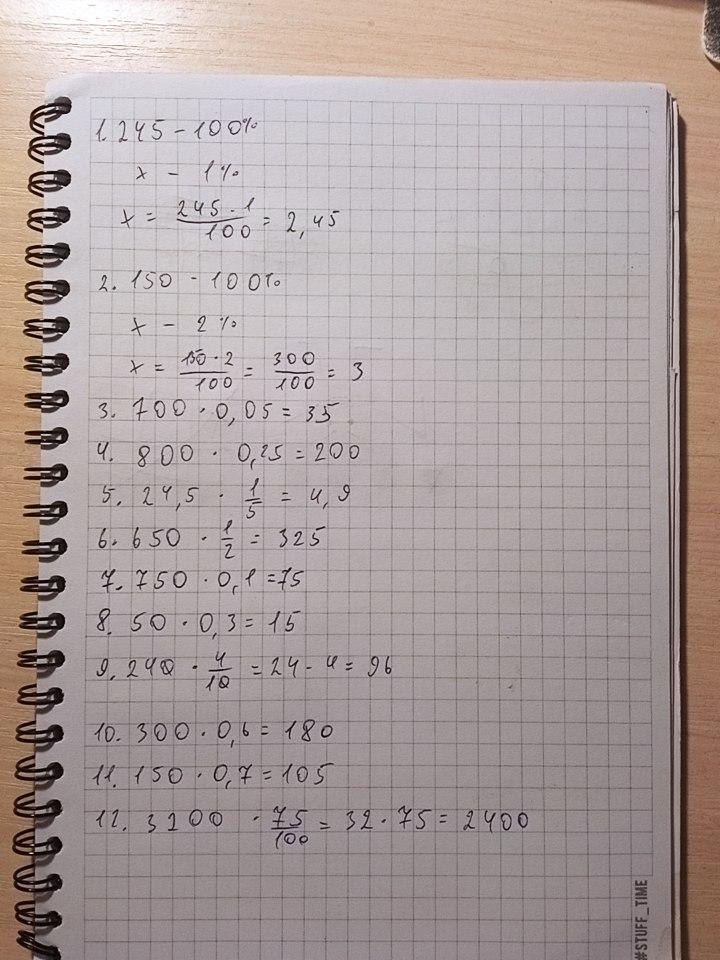 1. 245 - 100%
x - 1%
x = 245 · 1 / 100 = 2,45
2. 150 - 100%
x - 2%
x = 150 · 2 / 100 = 300 / 100 = 3
3. 700 · 0,05 = 35
4. 800 · 0,25 = 200
5. 24,5 · 1/5 = 4,9
6. 650 · 1/2 = 325
7. 750 · 0,1 = 75
8. 50 · 0,3 = 15
9. 240 · 4/10 = 24 - 4 = 96
10. 300 · 0,6 = 180
11. 150 · 0,7 = 105
12. 3200 · 75/100 = 32 · 75 = 2400
#STUFF_TIME